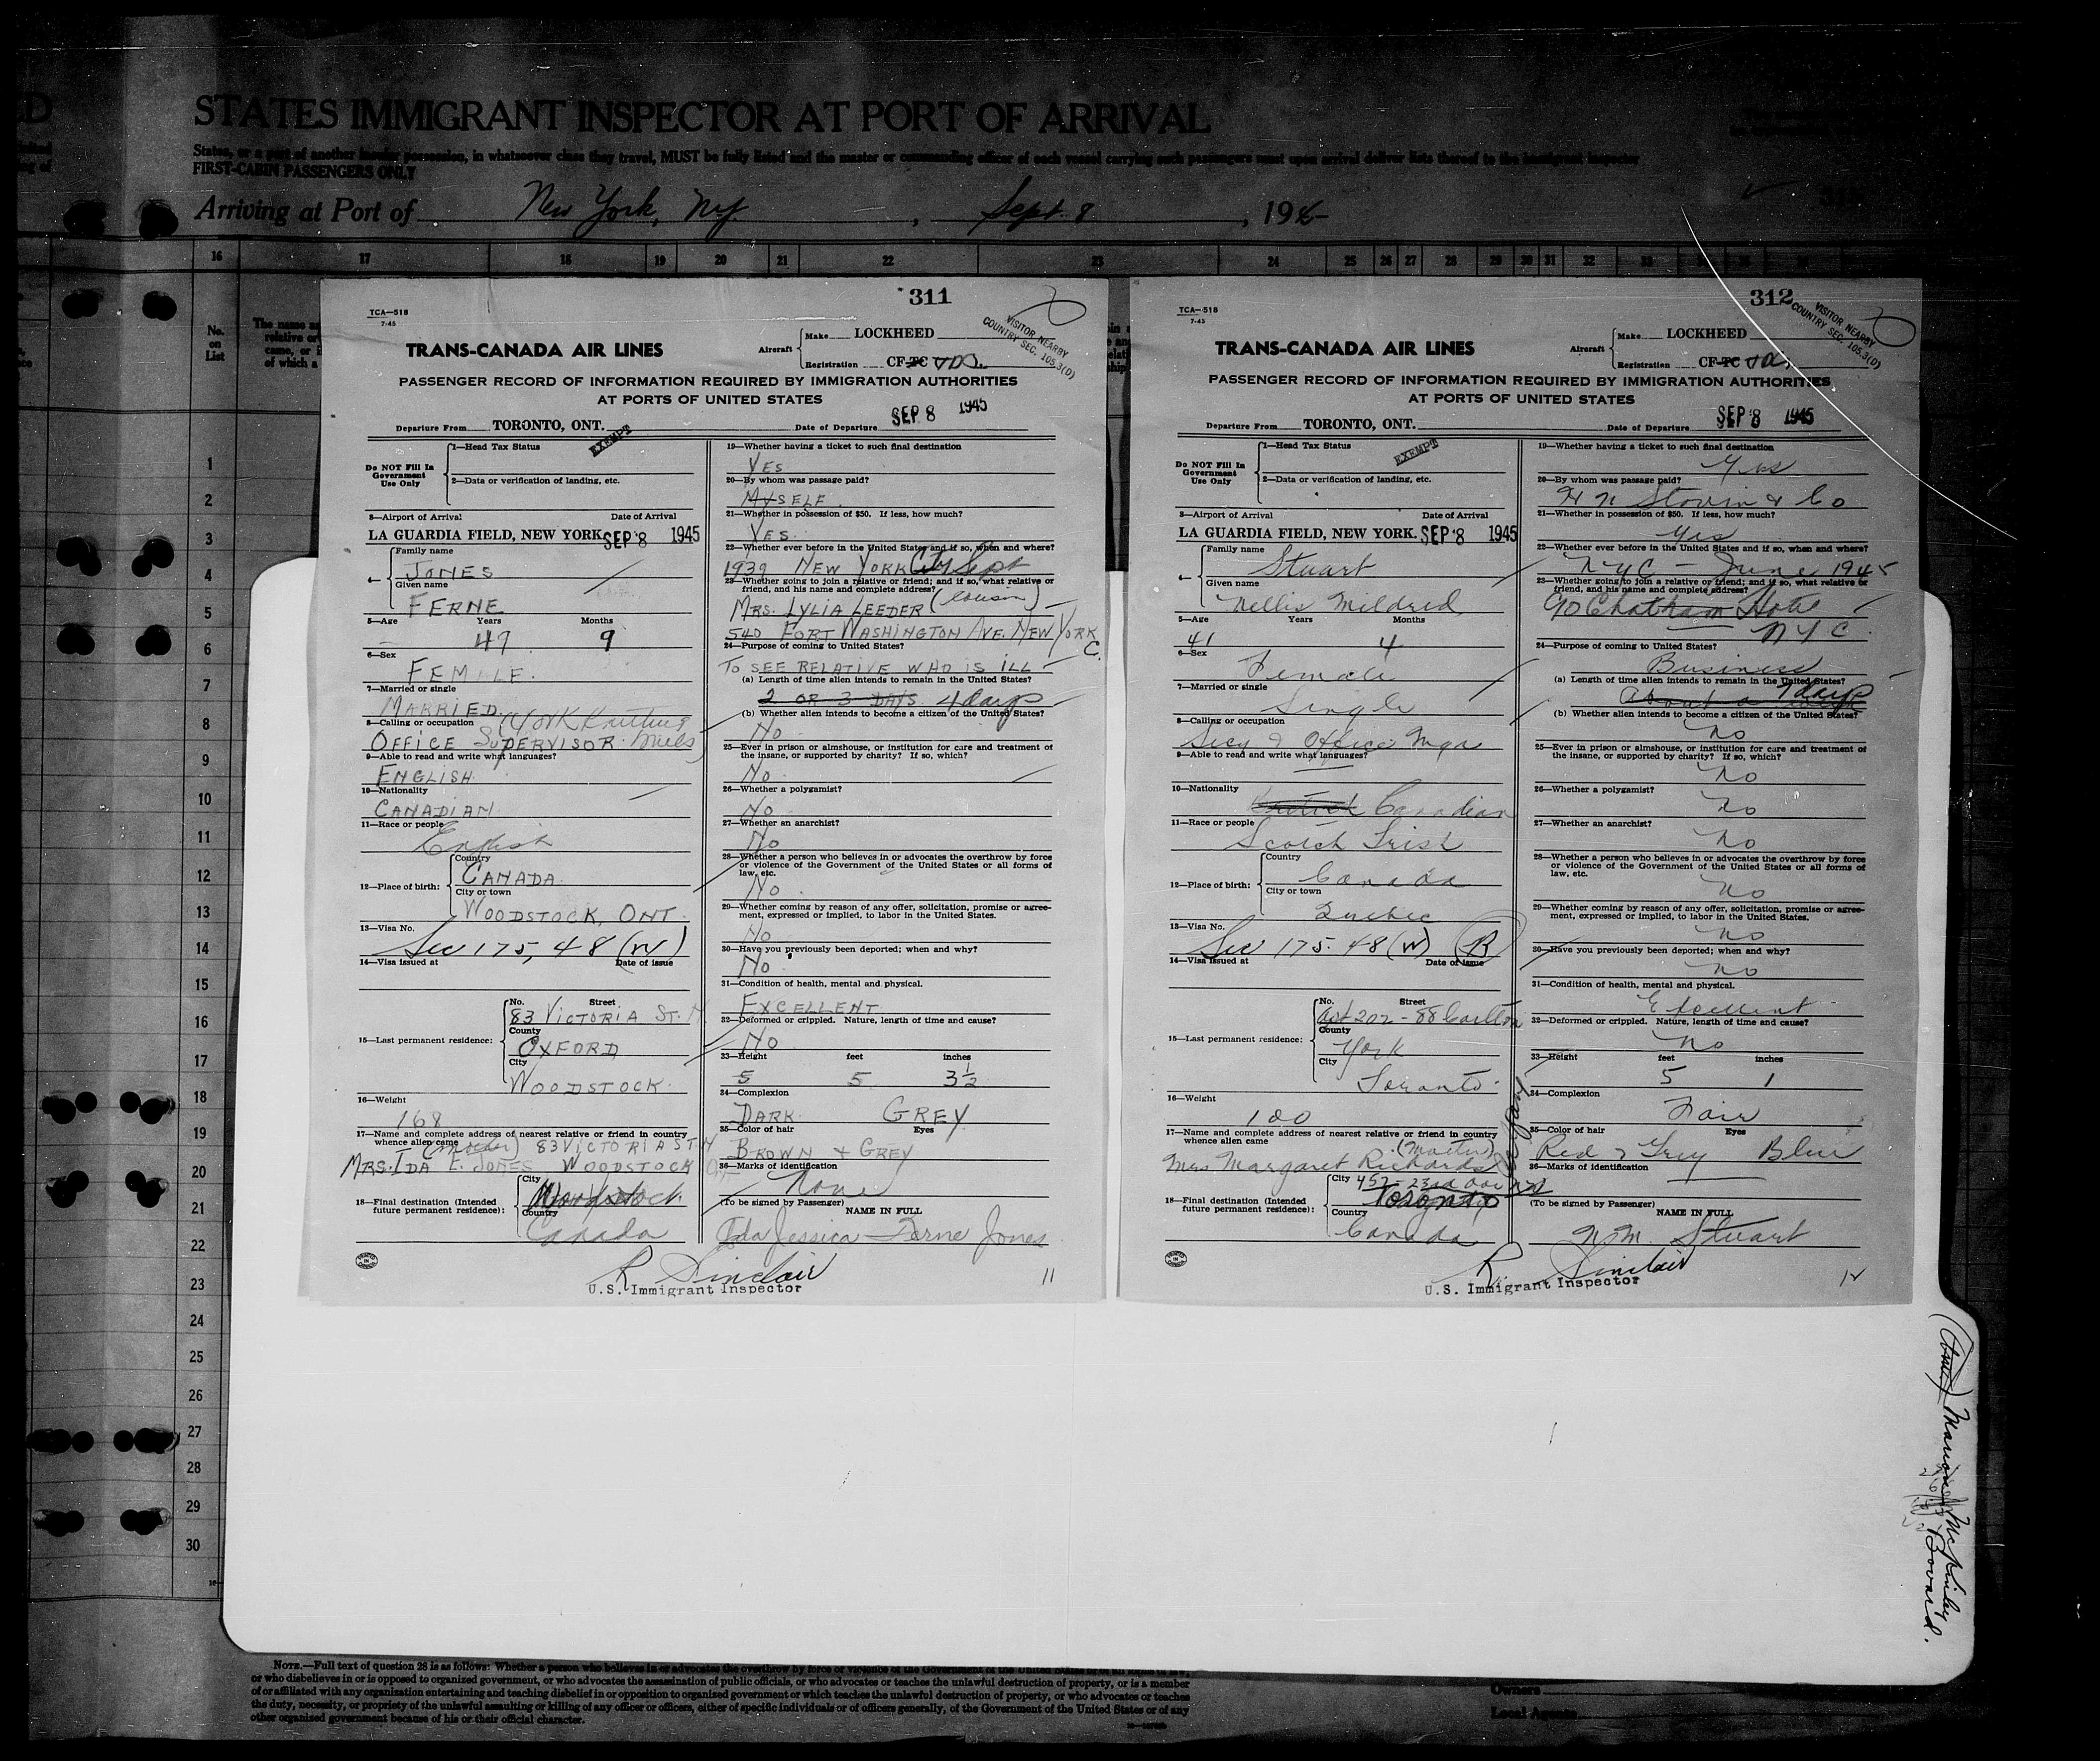 STATES IMMIGRANT INSPECTOR AT PORT OF ARRIVAL
States, or a part of another insular possession, in whatsoever class they travel, MUST be fully listed and the master or commanding officer of each vessel carrying such passengers must upon arrival deliver lists thereof to the immigrant inspector
FIRST-CABIN PASSENGERS ONLY
Arriving at Port of New York, NY. , Sept. 8 , 1945
16 17 18 19 20 21 22 23 24 25 26 27 28 29 30 31 32 33
No. on List
1
2
3
4
5
6
7
8
9
10
11
12
13
14
15
16
17
18
19
20
21
22
23
24
25
26
27
28
29
30
311
TCA—518
7-45
VISITOR NEARBY
COUNTRY SEC. 105.3(D)
TRANS-CANADA AIR LINES
Aircraft Make LOCKHEED
Registration CF-TC
PASSENGER RECORD OF INFORMATION REQUIRED BY IMMIGRATION AUTHORITIES
AT PORTS OF UNITED STATES
Departure From TORONTO, ONT. Date of Departure SEP 8 1945
Do NOT Fill In Government Use Only
1—Head Tax Status EXEMPT
2—Data or verification of landing, etc.
3—Airport of Arrival Date of Arrival
LA GUARDIA FIELD, NEW YORK. SEP 8 1945
4— Family name
JONES
Given name
FERNE
5—Age Years Months
49 9
6—Sex
FEMALE.
7—Married or single
MARRIED.
8—Calling or occupation (York Knitting
OFFICE SUPERVISOR. Mills)
9—Able to read and write what languages?
ENGLISH.
10—Nationality
CANADIAN.
11—Race or people
English
12—Place of birth: Country
CANADA.
City or town
WOODSTOCK, ONT.
13—Visa No.
Sec 175, 48 (W)
14—Visa issued at Date of issue
15—Last permanent residence: No. Street
83 VICTORIA ST. N
County
OXFORD
City
WOODSTOCK.
16—Weight
168
17—Name and complete address of nearest relative or friend in country
whence alien came
(Mother) 83 VICTORIA ST. N
MRS. IDA E. JONES WOODSTOCK
18—Final destination (Intended future permanent residence): City
Woodstock
Country
Canada
19—Whether having a ticket to such final destination
YES
20—By whom was passage paid?
MYSELF
21—Whether in possession of $50. If less, how much?
YES.
22—Whether ever before in the United States and if so, when and where?
1939 NEW YORK City Sept
23—Whether going to join a relative or friend; and if so, what relative or
friend, and his name and complete address?
MRS. LYLIA LEEDER (Cousin)
540 FORT WASHINGTON AVE. NEW YORK C.
24—Purpose of coming to United States?
TO SEE RELATIVE WHO IS ILL
(a) Length of time alien intends to remain in the United States?
2 OR 3 DAYS 4 days
(b) Whether alien intends to become a citizen of the United States?
No
25—Ever in prison or almshouse, or institution for care and treatment of
the insane, or supported by charity? If so, which?
No
26—Whether a polygamist?
No
27—Whether an anarchist?
No
28—Whether a person who believes in or advocates the overthrow by force
or violence of the Government of the United States or all forms of
law, etc.
No
29—Whether coming by reason of any offer, solicitation, promise or agree-
ment, expressed or implied, to labor in the United States.
No
30—Have you previously been deported; when and why?
No
31—Condition of health, mental and physical.
EXCELLENT
32—Deformed or crippled. Nature, length of time and cause?
No
33—Height feet inches
5 5 3½
34—Complexion
DARK GREY
35—Color of hair Eyes
BROWN & GREY
36—Marks of identification
None
(To be signed by Passenger) NAME IN FULL
Ida Jessica Ferne Jones
R Sinclair
U.S. Immigrant Inspector
11
312
TCA—518
7-45
VISITOR NEARBY
COUNTRY SEC. 105.3(D)
TRANS-CANADA AIR LINES
Aircraft Make LOCKHEED
Registration CF-TC
PASSENGER RECORD OF INFORMATION REQUIRED BY IMMIGRATION AUTHORITIES
AT PORTS OF UNITED STATES
Departure From TORONTO, ONT. Date of Departure SEP 8 1945
Do NOT Fill In Government Use Only
1—Head Tax Status EXEMPT
2—Data or verification of landing, etc.
3—Airport of Arrival Date of Arrival
LA GUARDIA FIELD, NEW YORK. SEP 8 1945
4— Family name
Stuart
Given name
Nellie Mildred
5—Age Years Months
41 4
6—Sex
Female
7—Married or single
Single
8—Calling or occupation
Secy & Office Mgr
9—Able to read and write what languages?
10—Nationality
British Canadian
11—Race or people
Scotch Irish
12—Place of birth: Country
Canada
City or town
Quebec
13—Visa No.
Sec 175. 48 (W) (R)
14—Visa issued at Date of issue
15—Last permanent residence: No. Street
Apt 202 - 88 Carlton
County
York
City
Toronto.
16—Weight
100
17—Name and complete address of nearest relative or friend in country
whence alien came
Mrs Margaret Richards
18—Final destination (Intended future permanent residence): City 452 - 23rd Ave
Toronto
Country
Canada
19—Whether having a ticket to such final destination
Yes
20—By whom was passage paid?
H N Stovin & Co
21—Whether in possession of $50. If less, how much?
Yes
22—Whether ever before in the United States and if so, when and where?
NYC - June 1945
23—Whether going to join a relative or friend; and if so, what relative or
friend, and his name and complete address?
Chatham Hotel
NYC.
24—Purpose of coming to United States?
Business
(a) Length of time alien intends to remain in the United States?
About a week 7 days
(b) Whether alien intends to become a citizen of the United States?
No
25—Ever in prison or almshouse, or institution for care and treatment of
the insane, or supported by charity? If so, which?
No
26—Whether a polygamist?
No
27—Whether an anarchist?
No
28—Whether a person who believes in or advocates the overthrow by force
or violence of the Government of the United States or all forms of
law, etc.
No
29—Whether coming by reason of any offer, solicitation, promise or agree-
ment, expressed or implied, to labor in the United States.
No
30—Have you previously been deported; when and why?
No
31—Condition of health, mental and physical.
Excellent
32—Deformed or crippled. Nature, length of time and cause?
No
33—Height feet inches
5 1
34—Complexion
Fair
35—Color of hair Eyes
Red & Grey Blue
36—Marks of identification
(To be signed by Passenger) NAME IN FULL
N.M. Stuart
R. Sinclair
U.S. Immigrant Inspector
12
Bovaird.
NOTE.—Full text of question 28 is as follows: Whether a person who believes in or advocates the overthrow by force or violence of the Government of the United States
or who disbelieves in or is opposed to organized government, or who advocates the assassination of public officials, or who advocates or teaches the unlawful destruction of property, or is a member
of or affiliated with any organization entertaining and teaching disbelief in or opposition to organized government or which teaches the unlawful destruction of property, or who advocates or teaches
the duty, necessity, or propriety of the unlawful assaulting or killing of any officer or officers, either of specific individuals or of officers generally, of the Government of the United States or of any
other organized government because of his or their official character.
Owners
Local Agents